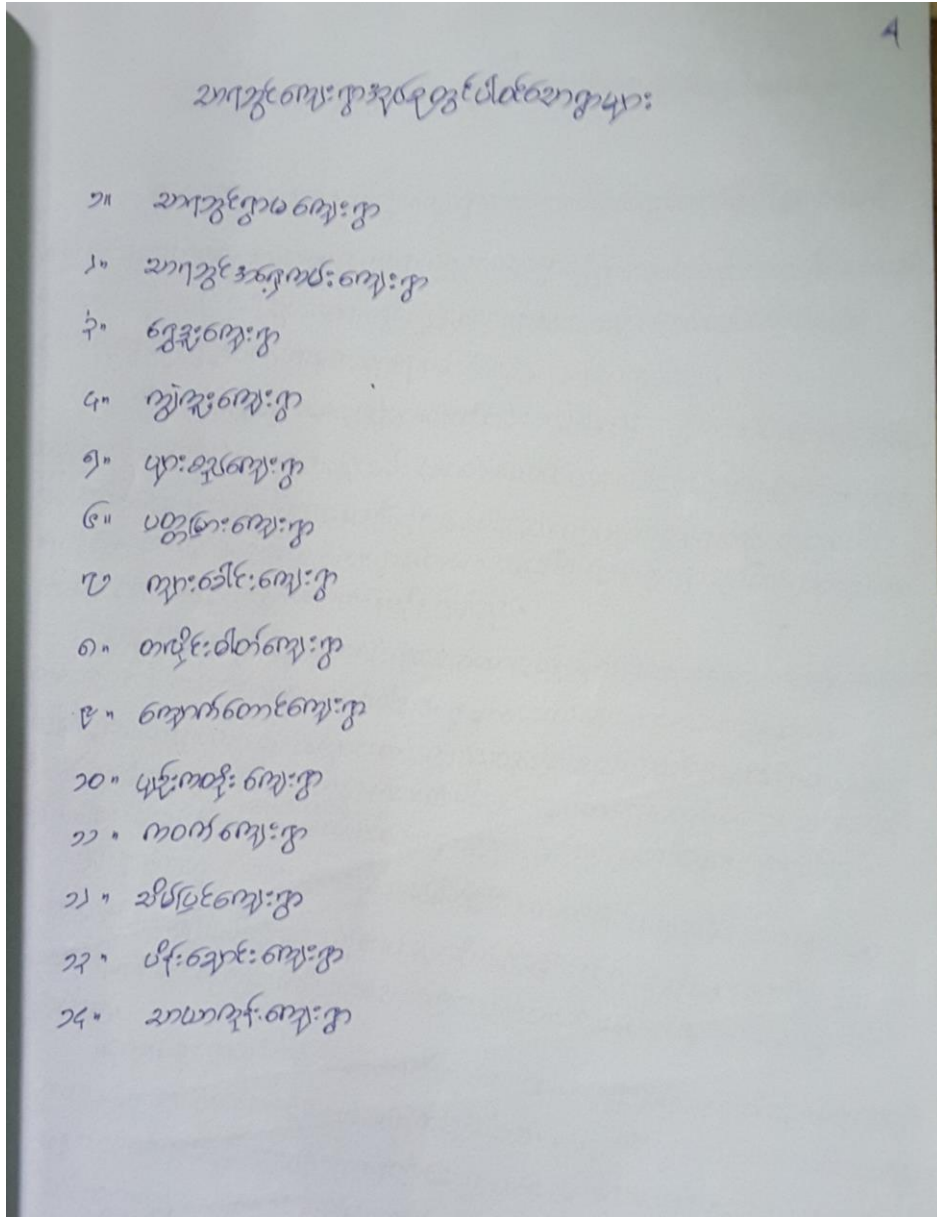 4
သာရဘွင်ကျေးရွာအုပ်စုတွင်ပါဝင်သောရွာများ
၁။ သာရဘွင်ရွာမကျေးရွာ
၂။ သာရဘွင်အရှေ့ကမ်းကျေးရွာ
၃။ ရွှေဒူးကျေးရွာ
၄။ ကျွဲကူးကျေးရွာ
၅။ များစည်ကျေးရွာ
၆။ ပတ္တမြားကျေးရွာ
၇ ကျားခေါင်းကျေးရွာ
၈။ တလိုင်းဝါတ်ကျေးရွာ
၉။ ကျောက်တောင်ကျေးရွာ
၁၀။ ပျဉ်းကတိုးကျေးရွာ
၁၁။ ကဝက်ကျေးရွာ
၁၂။ သိမ်ပြင်ကျေးရွာ
၁၃။ ပိန်းသျောင်းကျေးရွာ
၁၄။ သာယာကုန်းကျေးရွာ